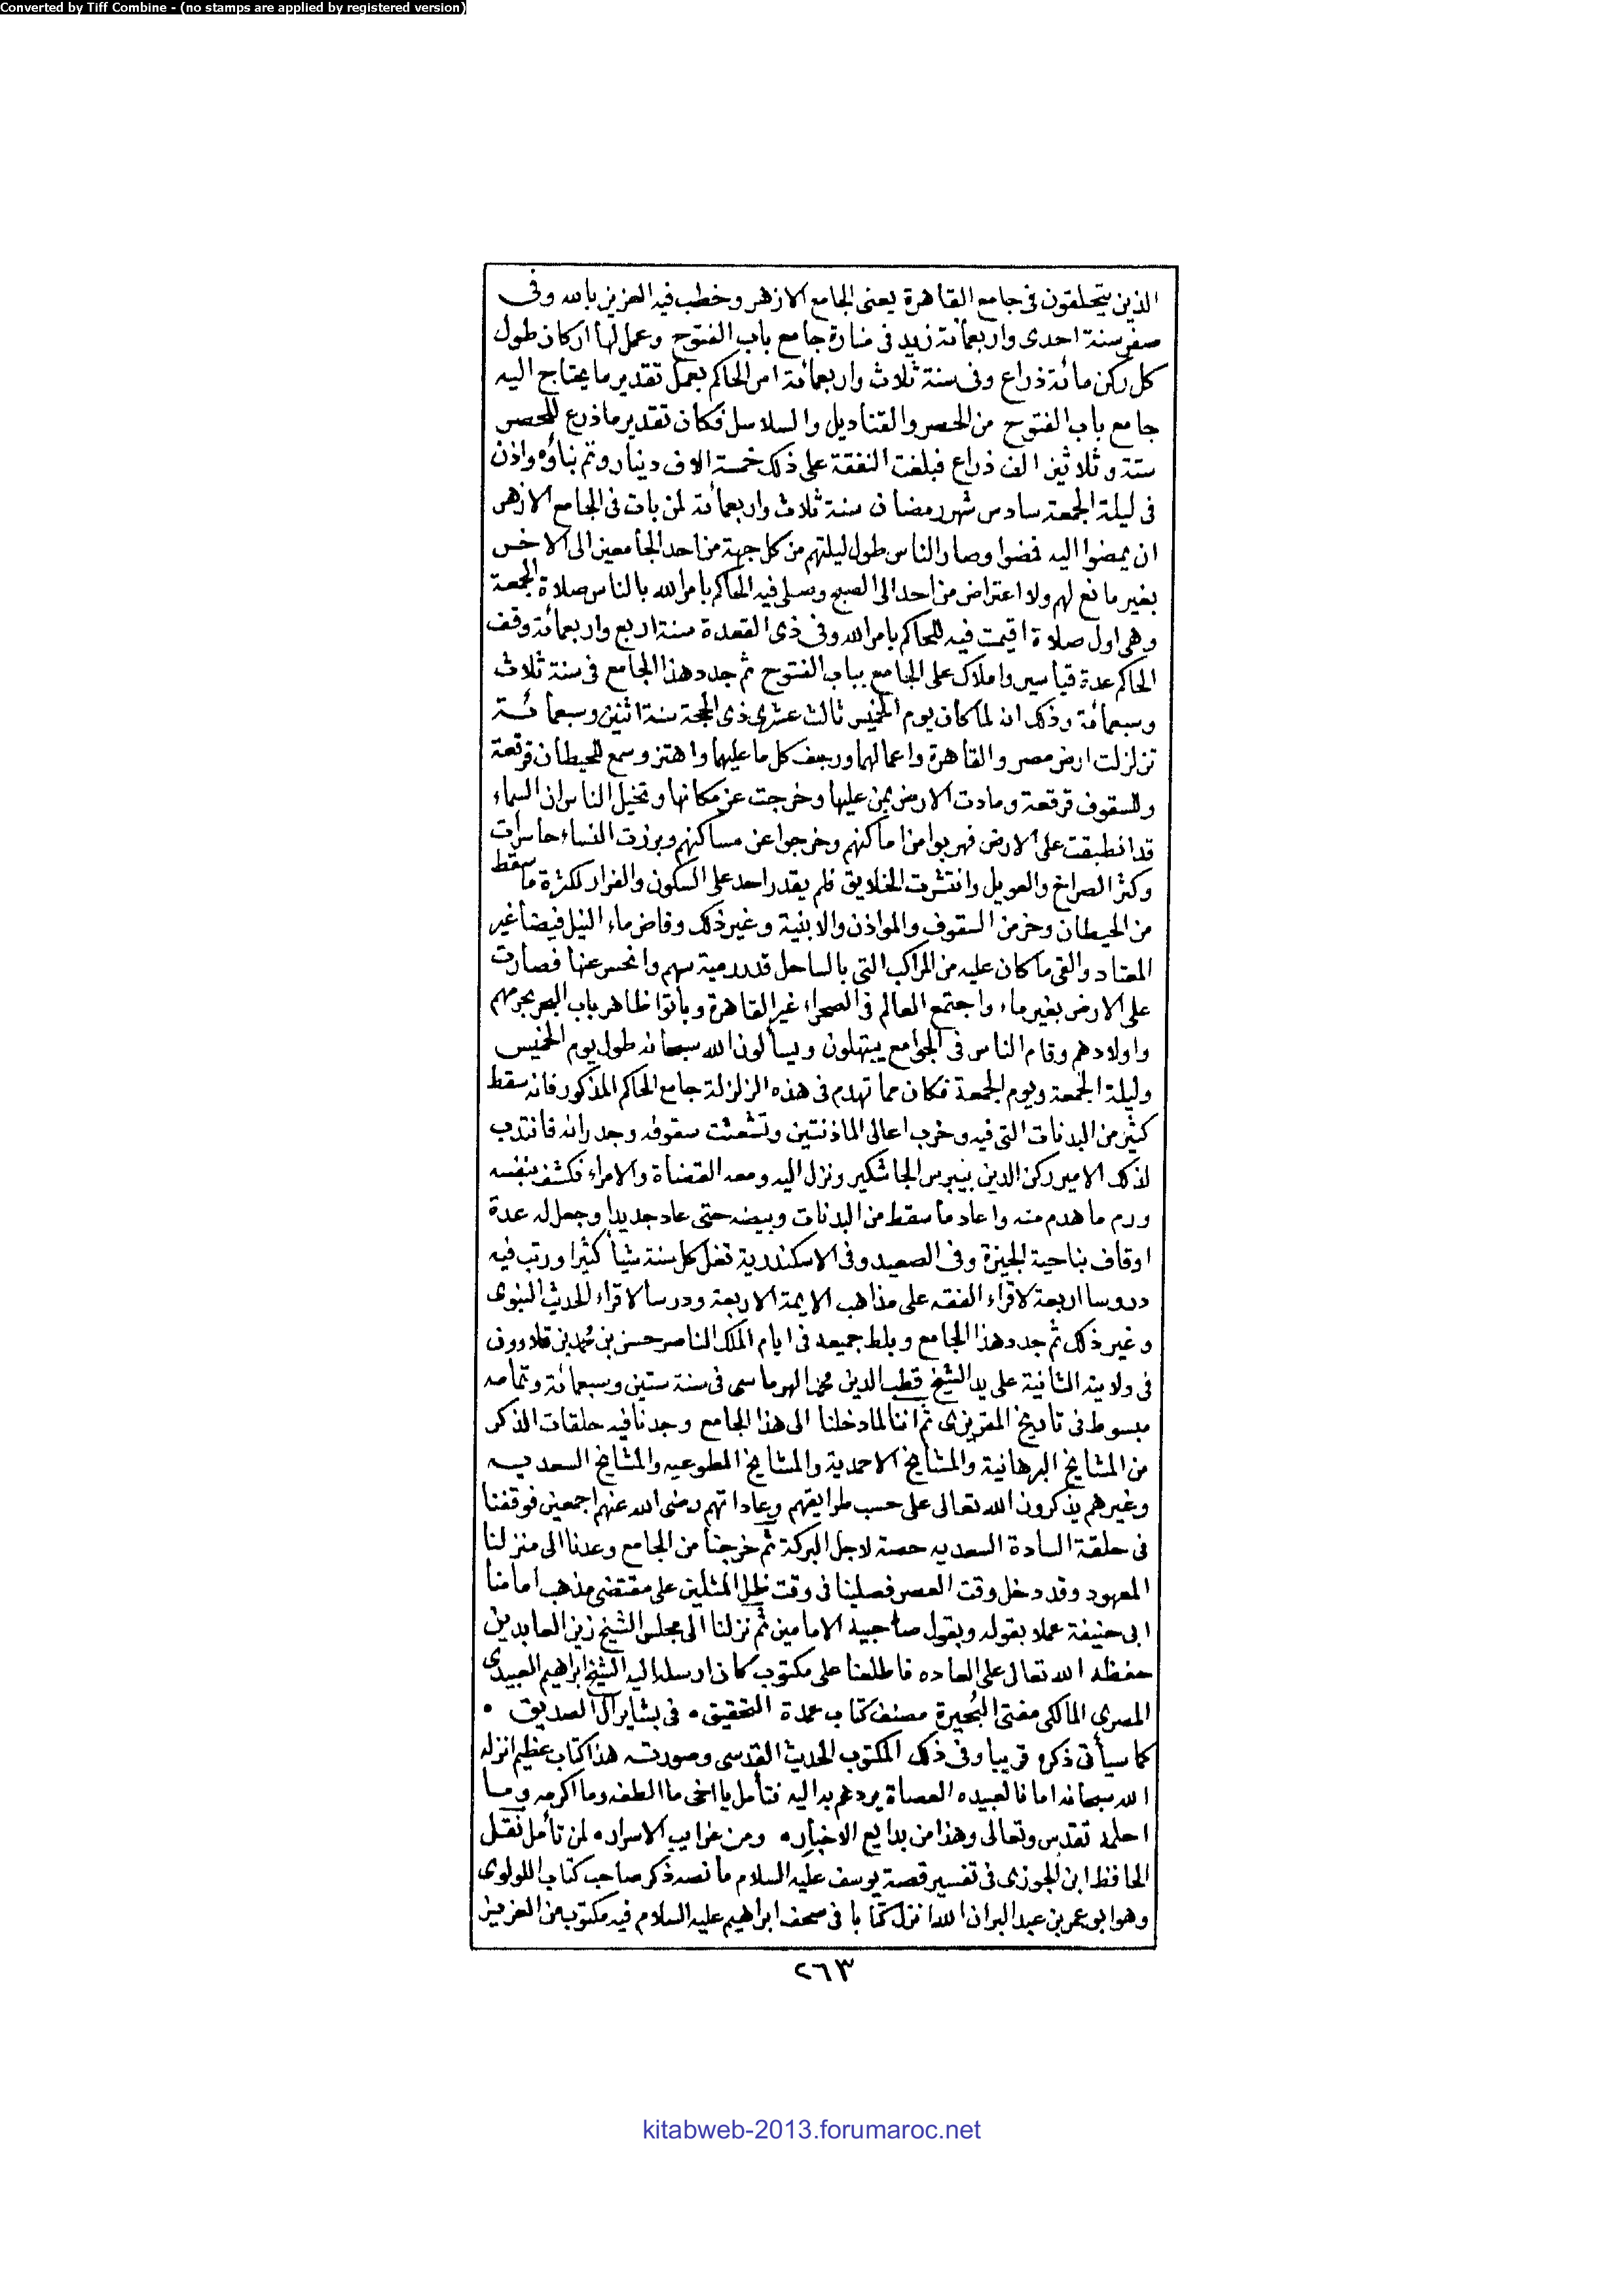 Converted by Tiff Combine - (no stamps are applied by registered version)
الذين يتحلقون فى جامع القاهرة يعنى الجامع الازهر وخطب فيه العزيز بالله وفى
صفر سنة احدى واربعمائة زيد فى منارة جامع باب الفتوح وعمل لها اركان طول
كل ركن مائة ذراع وفى سنة ثلاث واربعمائة امر الحاكم بعمل تقدير ما يحتاج اليه
جامع باب الفتوح من الحصر والقناديل والسلاسل فكان تقدير ما ذرع للحصر
ستة وثلاثين الف ذراع فبلغت النفقة على ذلك خمسة الاف دينار وتم بناؤه واذن
فى ليلة الجمعة سادس شهر رمضان سنة ثلاث واربعمائة لمن بات فى الجامع الازهر
ان يمضوا اليه فمضوا وصار الناس طول ليلتهم من كل جهة من احد الجامعين الى الاخر
بغير مانع لهم ولا اعتراض من احد الى الصبح وصلى فيه الحاكم بامر الله بالناس صلاة الجمعة
وهى اول صلاة اقيمت فيه للحاكم بامر الله وفى ذى القعدة سنة اربع واربعمائة وقف
الحاكم عدة قياسير واملاك على الجامع بباب الفتوح ثم جدد هذا الجامع فى سنة ثلاث
وسبعمائة وذلك انه لما كان يوم الخميس ثالث عشرى ذى الحجة سنة اثنين وسبعمائة
تزلزلت ارض مصر والقاهرة واعمالهما ورجف كل ما عليهما واهتز وسمع للحيطان قرقعة
وللسقوف قرقعة ومادت الارض بمن عليها وخرجت عن مكانها وتخيل الناس ان السماء
قد انطبقت على الارض فهربوا من اماكنهم وخرجوا عن مساكنهم وبرزت النساء حاسرات
وكثر الصراخ والعويل وانتشرت الخلايق فلم يقدر احد على السكون والفرار لكثرة ما سقط
من الحيطان وخر من السقوف والمواذن والابنية وغير ذلك وفاض ماء النيل فيضا غير
المعتاد والقى ما كان عليه من المراكب التى بالساحل قدر رمية سهم وانحسر عنها فصارت
على الارض بغير ماء واجتمع العالم فى الصحراء غير القاهرة وباتوا ظاهر باب البحر بحرمهم
واولادهم وقام الناس فى الجوامع يبتهلون ويسألون الله سبحانه طول يوم الخميس
وليلة الجمعة ويوم الجمعة فكان مما تهدم فى هذه الزلزلة جامع الحاكم المذكور فانه سقط
كثير من البدنات التى فيه وخرب اعالى الماذنتين وتشعثت سقوفه وجدرانه فانتدب
لذلك الامير ركن الدين بيبرس الجاشنكير ونزل اليه ومعه القضاة والامراء فكشف بنفسه
ورم ما هدم منه واعاد ما سقط من البدنات وبيضه حتى عاد جديدا وجعل له عدة
اوقاف بناحية الجيزة وفى الصعيد وفى الاسكندرية تغل كل سنة شيأ كثيرا ورتب فيه
دروسا اربعة لاقراء الفقه على مذاهب الايمة الاربعة ودرسا لاقراء الحديث النبوى
وغير ذلك ثم جدد هذا الجامع وبلط جميعه فى ايام الملك الناصر حسن بن محمد بن قلاوون
فى ولايته الثانية على يد الشيخ قطب الدين محمد الهرماسى فى سنة ستين وسبعمائة وتمامه
مبسوط فى تاريخ المقريزى ثم اننا لما دخلنا الى هذا الجامع وجدنا فيه حلقات الذكر
من المشايخ البرهانية والمشايخ الاحمدية والمشايخ المطوعيه والمشايخ السعديه
وغيرهم يذكرون الله تعالى على حسب طرايقهم وعاداتهم رضى الله عنهم اجمعين فوقفنا
فى حلقة السادة السعديه حصة لاجل البركة ثم خرجنا من الجامع وعدنا الى منزلنا
المعهود وقد دخل وقت العصر فصلينا فى وقت ظل المثلين على مقتضى مذهب امامنا
ابى حنيفة عملا بقوله وبقول صاحبيه الامامين ثم نزلنا الى مجلس الشيخ زين العابدين
حفظه الله تعالى على العاده فاطلعنا على مكتوب كان ارسله اليه الشيخ ابراهيم العبيدى
المصرى المالكى مفتى البُحيرة مصنف كتاب عمدة التحقيق ٠ فى بشاير آل الصديق ٠
كما سيأتى ذكره قريبا وفى ذلك المكتوب الحديث القدسى وصورته هذا كتاب عظيم انزله
الله سبحانه امانا لعبيده العصاة يردهم به اليه فتأمل يا اخى ما الطفه وما اكرمه وما
احلمه تقدس وتعالى وهذا من بدايع الاخبار ٠ ومن غرايب الاسرار ٠ لمن تأمل نقل
الحافظ ابن الجوزى فى تفسير قصة يوسف عليه السلام ما نصه ذكر صاحب كتاب اللولوى
وهو ابو عمر بن عبد البر ان الله انزل كتابا فى صحف ابراهيم عليه السلام فيه مكتوب من العزيز
٢٦٣
kitabweb-2013.forumaroc.net